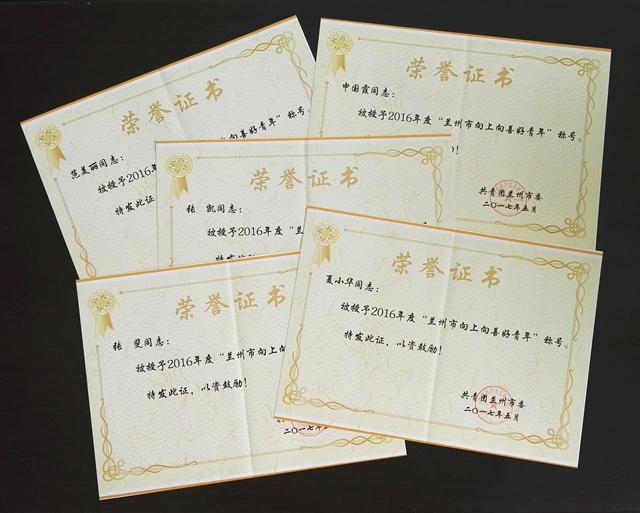 荣誉证书
范美丽同志：
被授予2016年
向上向善好青年”称号。
特发此证
荣誉证书
申国霞同志：
被授予2016年度“兰州市向上向善好青年”称号。
！
共青团兰州市委
二〇一七年五月
荣誉证书
张 凯同志：
被授予2016年度“兰
荣誉证书
张 斐同志：
被授予2016年度“兰州市向上向
特发此证，以资鼓励！
二〇一七年
荣誉证书
夏小华同志：
被授予2016年度“兰州市向上向善好青年”称号。
特发此证，以资鼓励！
共青团兰州市委
二〇一七年五月